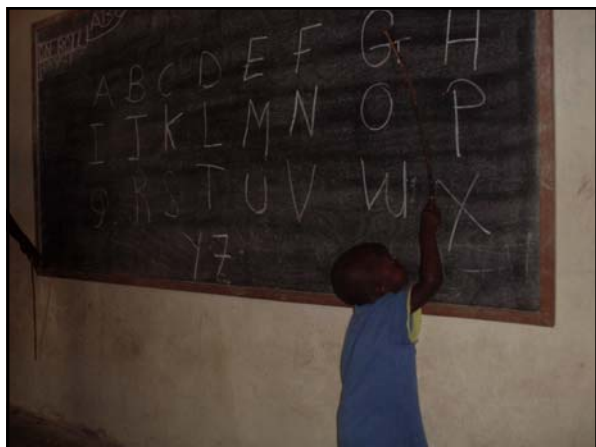 ABC
A B C D E F G H
I J K L M N O P
Q R S T U V W X
Y Z